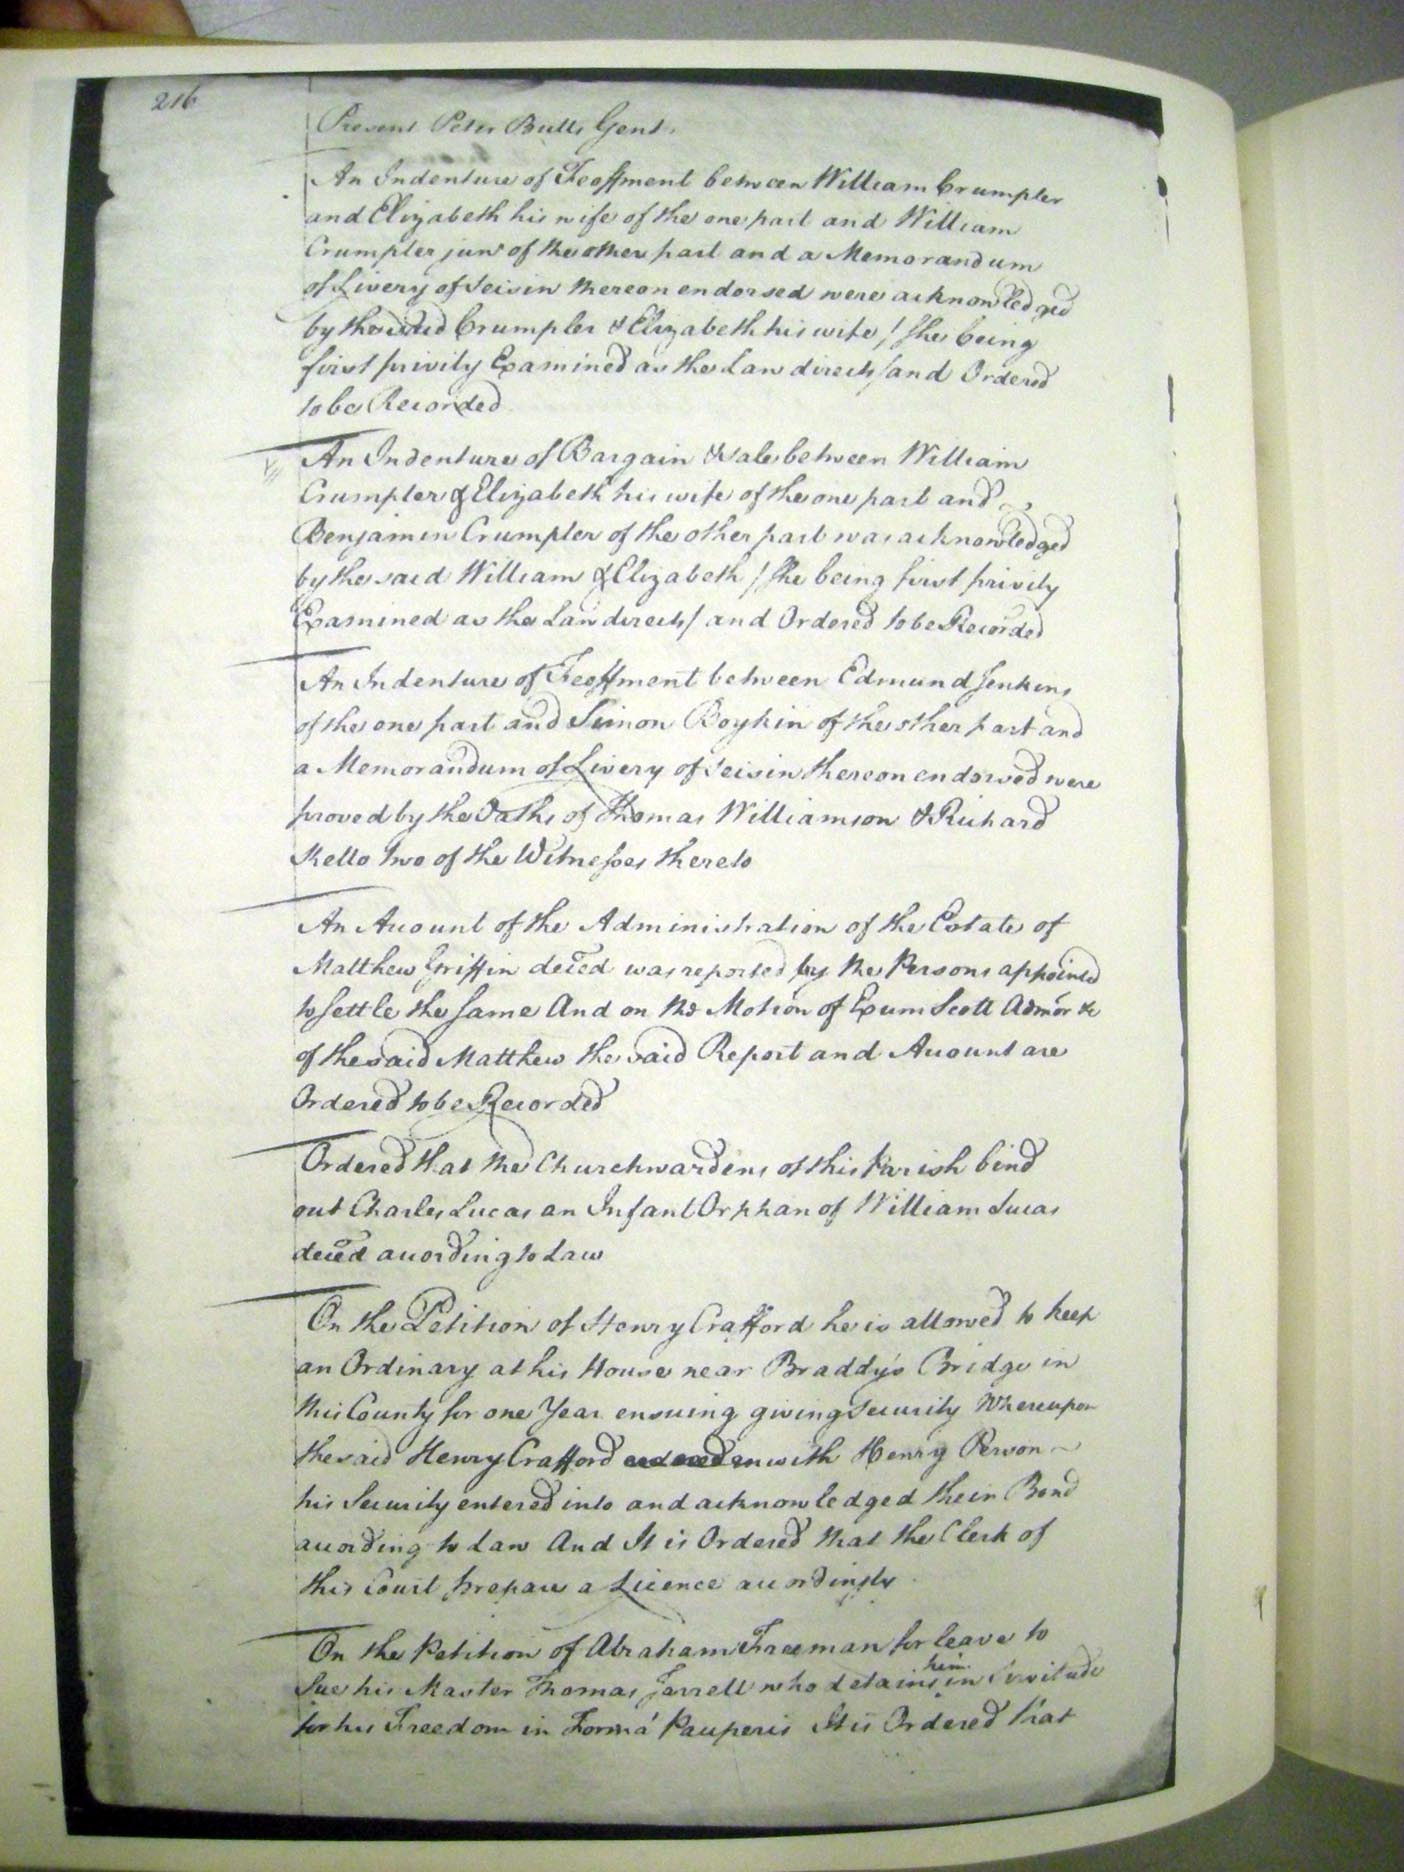 216
Present Peter Butts Gent.
An Indenture of Feoffment between William Crumpler
and Elizabeth his wife of the one part and William
Crumpler junr of the other part and a Memorandum
of Livery of Seisin thereon endorsed were acknowledged
by the said Crumpler & Elizabeth his wife / she being
first privily Examined as the Law directs / and Ordered
to be Recorded
An Indenture of Bargain & sale between William
Crumpler & Elizabeth his wife of the one part and
Benjamin Crumpler of the other part was acknowledged
by the said William & Elizabeth / she being first privily
Examined as the Law directs / and Ordered to be Recorded
An Indenture of Feoffment between Edmund Jenkins
of the one part and Simon Boykin of the other part and
a Memorandum of Livery of Seisin thereon endorsed were
proved by the Oaths of Thomas Williamson & Richard
Kello two of the Witnesses thereto
An Account of the Administration of the Estate of
Matthew Griffin deced was reported by the Persons appointed
to settle the same And on the Motion of Exum Scott Admor &c
of the said Matthew the said Report and Account are
Ordered to be Recorded
Ordered that the Churchwardens of this Parish bind
out Charles Lucas an Infant Orphan of William Lucas
deced according to Law
On the Petition of Henry Crafford he is allowed to keep
an Ordinary at his House near Braddy's Bridge in
this County for one Year ensuing giving Security Whereupon
the said Henry Crafford with Henry Person
his Security entered into and acknowledged their Bond
according to Law And It is Ordered that the Clerk of
this Court prepare a Licence accordingly.
On the Petition of Abraham Freeman for leave to
Sue his Master Thomas Jarrell who detains him in Servitude
for his Freedom in Formâ Pauperis It is Ordered that